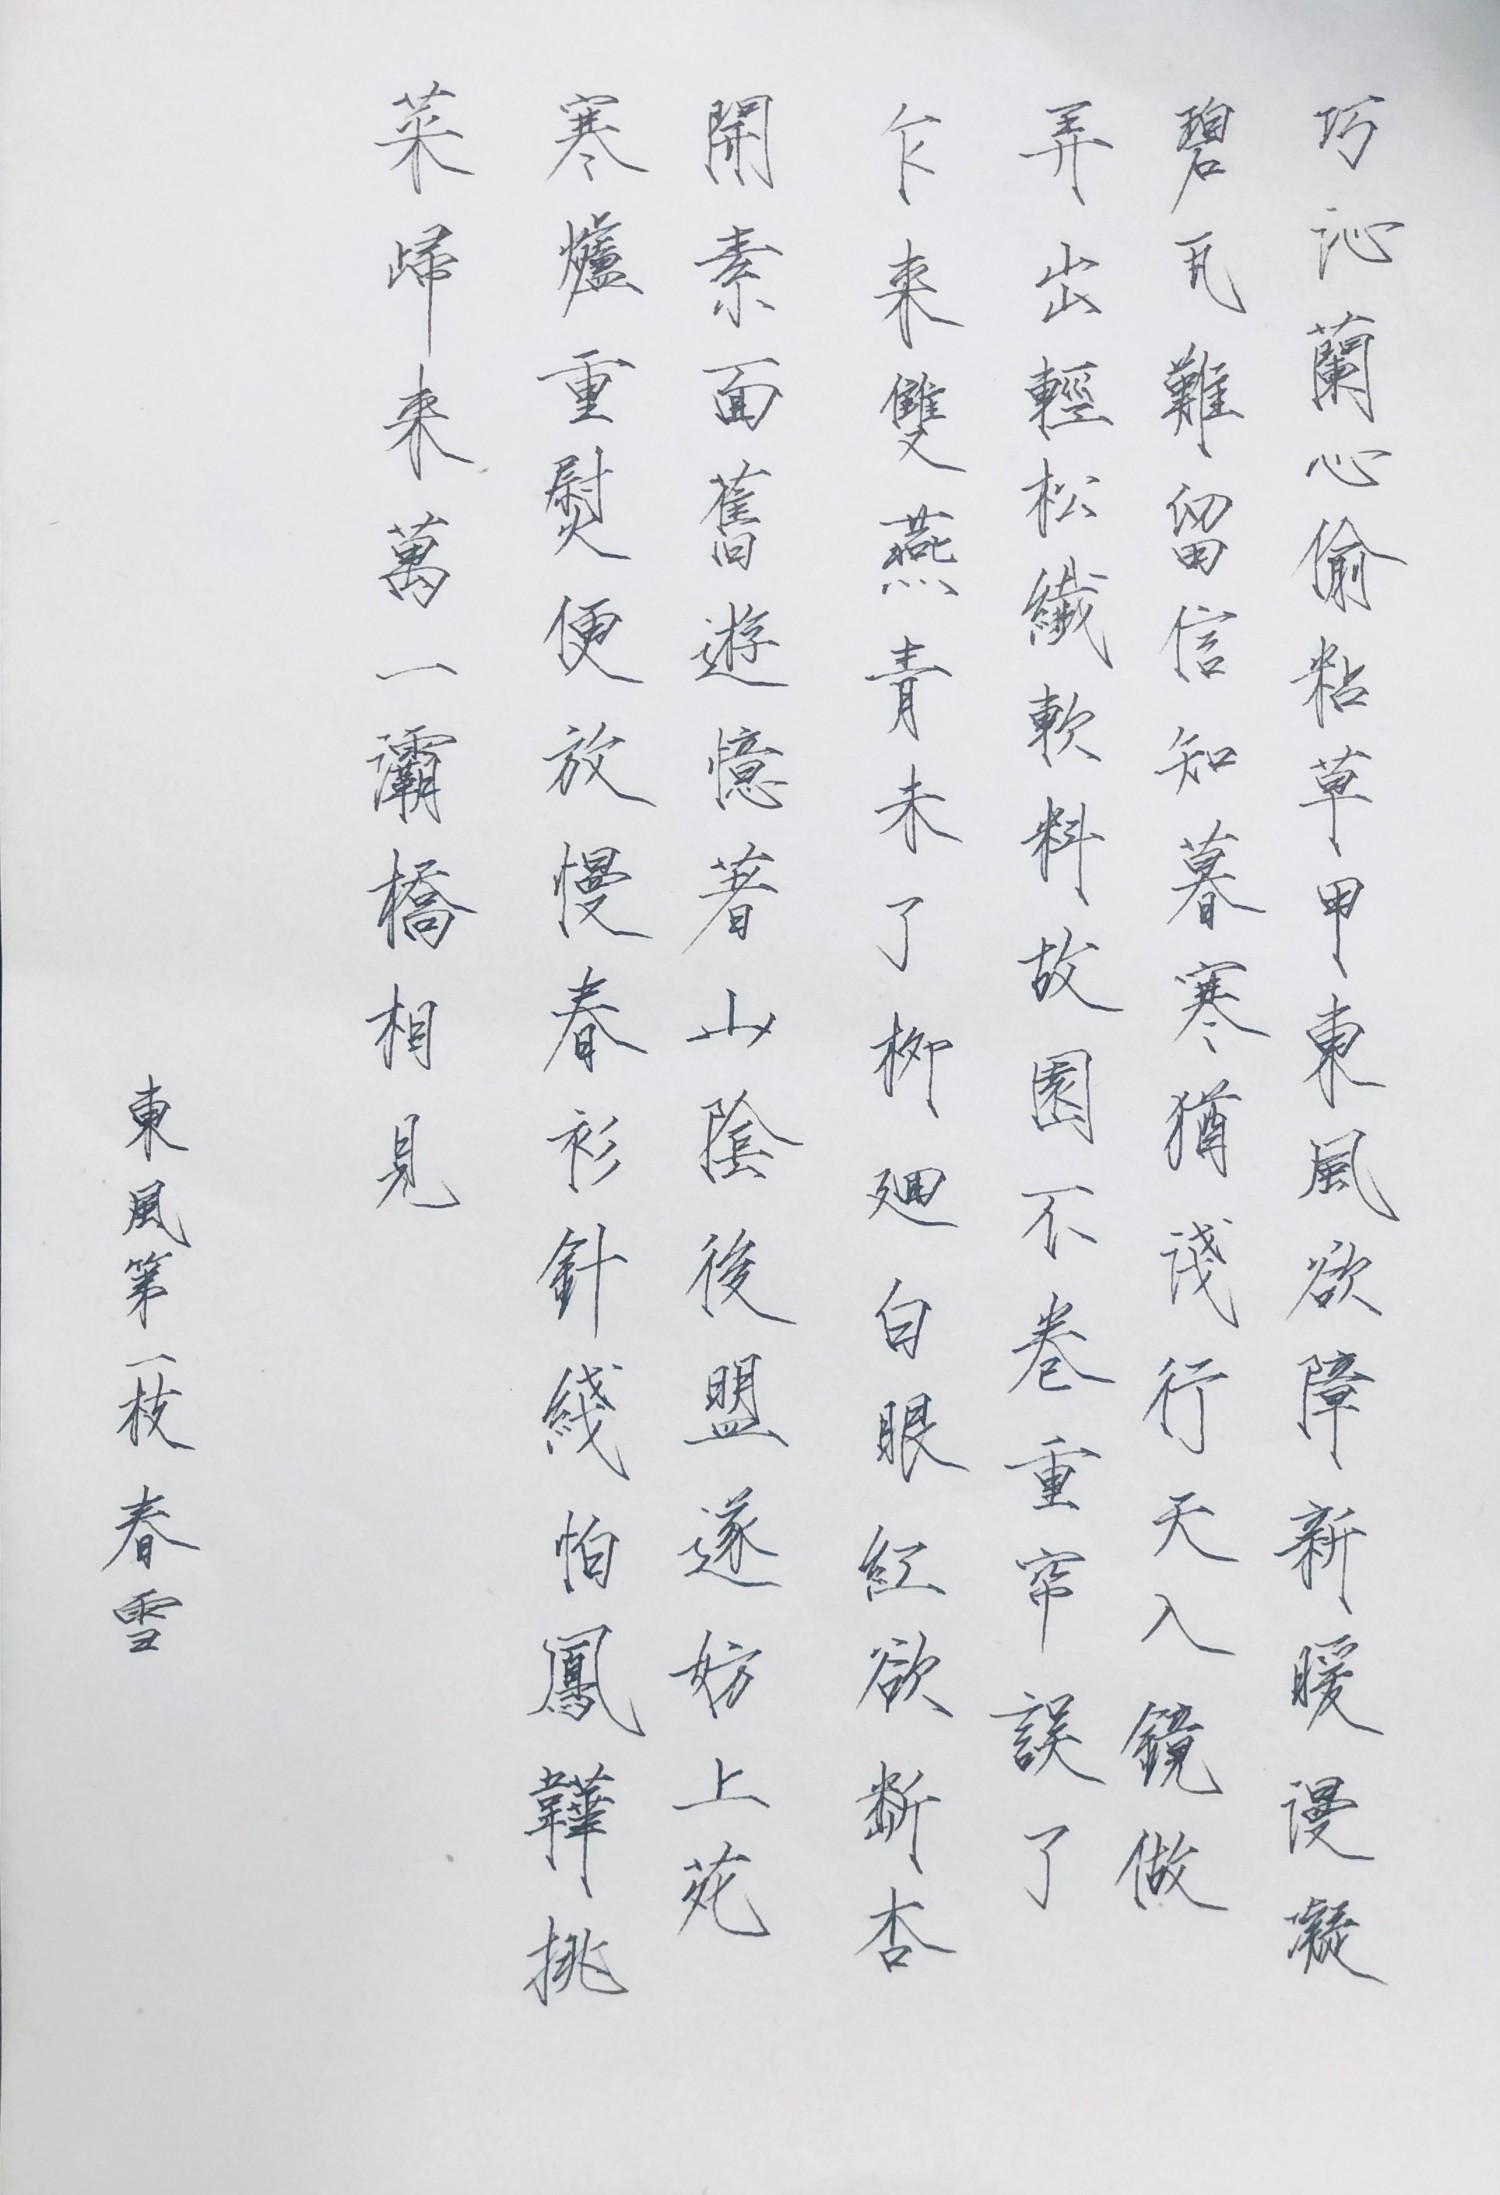 巧沁蘭心偷粘草甲東風欲障新暖謾凝
碧瓦難留信知暮寒猶淺行天入鏡做
弄出輕松纖軟料故園不卷重帘誤了
乍来雙燕青未了柳廻白眼紅欲斷杏
開素面舊遊憶著山陰後盟遂妨上苑
寒爐重熨便放慢春衫針綫怕鳳鞾挑
菜歸来萬一灞橋相見
東風第一枝春雪